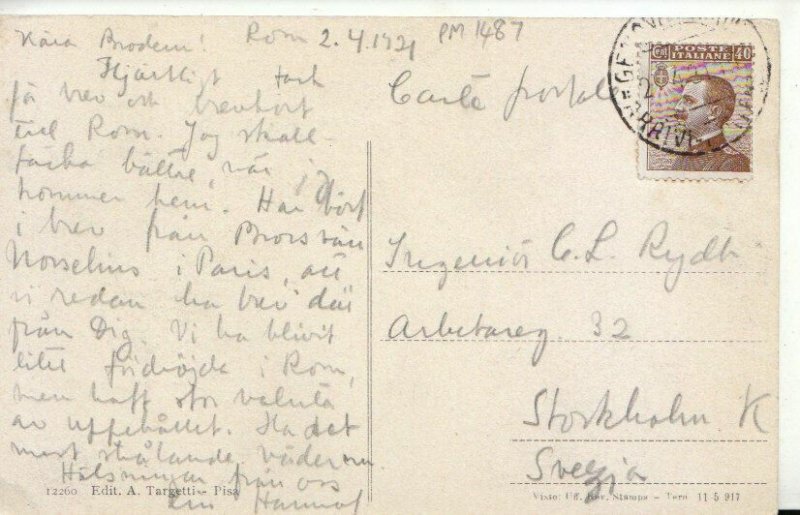 Kära Brodern! Rom 2.4.1921 PM 1487
Hjärtligt tack
få brev och brevkort
till Rom. Jag skall
tacka bättre, när jag
kommer hem. Har hört
i brev från Brors vän
Norselius i Paris, att
vi redan ha brev där
från Dig. Vi ha blivit
litet fördröjda i Rom,
men haft stor valuta
av uppehållet. Ha det
mest strålande väder nu
Hälsningar från oss
12260 Edit. A. Targetti - Pisa
CENT POSTE ITALIANE 40
ARRIVI
Carte postale
Ingeniör C. L. Rydh
Arbetareg. 32
Stockholm K
Svezia
Visto: Uff. Rev. Stampa - Terni 11 5 917